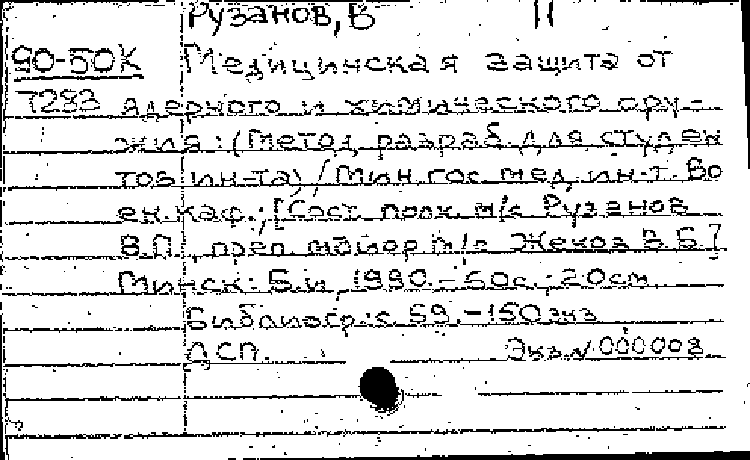 Рузанов, В II
90-50К Медицинская защита от
7283 ядерного и химического ору-
жия: (Метод. разраб. для студен
тов ин-та) / Мин. гос. мед. ин-т. Во
ен. каф.; [Сост. полк. м/с Рузанов
В.П., преп. майор м/с Жехоа В.Б.]
Минск: Б.и, 1990. - 60с.; 20см
Библиогр.: с. 59. - 150 экз
ДСП. Экз. N 000008